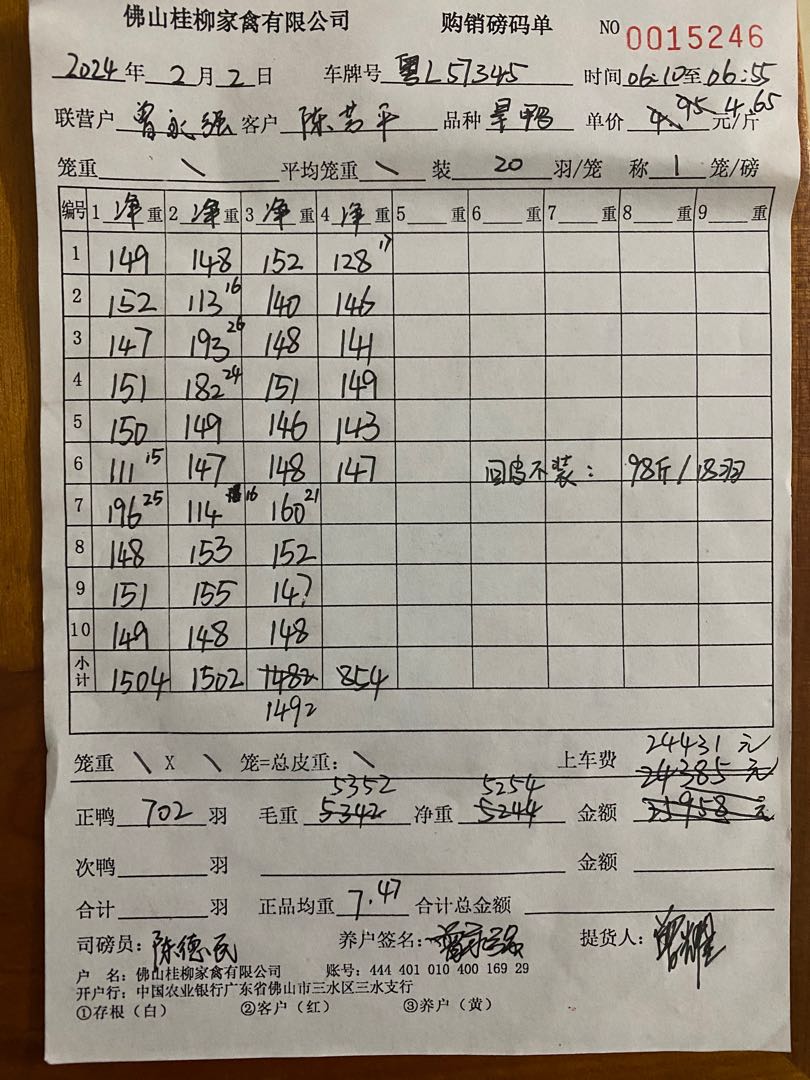 佛山桂柳家禽有限公司 购销磅码单 NO 0015246
2024年2月2日 车牌号 粤L57345 时间06:10至06:55
联营户 曾永强 客户 陈芳平 品种 旱鸭 单价 4.95 4.65 元/斤
笼重 \ 平均笼重 \ 装 20 羽/笼 称 1 笼/磅
编号 1 净重 2 净重 3 净重 4 净重 5 重 6 重 7 重 8 重 9 重
1 149 148 152 128 17
2 152 113 16 140 146
3 147 193 26 148 141
4 151 182 24 151 149
5 150 149 146 143
6 111 15 147 148 147 回皮不装: 98斤/18羽
7 196 25 114 16 160 21
8 148 153 152
9 151 155 147
10 149 148 148
小计 1504 1502 1482 854
1492
24431元
笼重 \ X \ 笼=总皮重: \ 上车费 24385元
5352 5254
正鸭 702 羽 毛重 5342 净重 5244 金额 25958元
次鸭 羽 金额
合计 羽 正品均重 7.47 合计总金额
司磅员: 陈德民 养户签名: 曾永强 提货人:
户 名: 佛山桂柳家禽有限公司 账号: 444 401 010 400 169 29
开户行: 中国农业银行广东省佛山市三水区三水支行
①存根(白) ②客户(红) ③养户(黄)